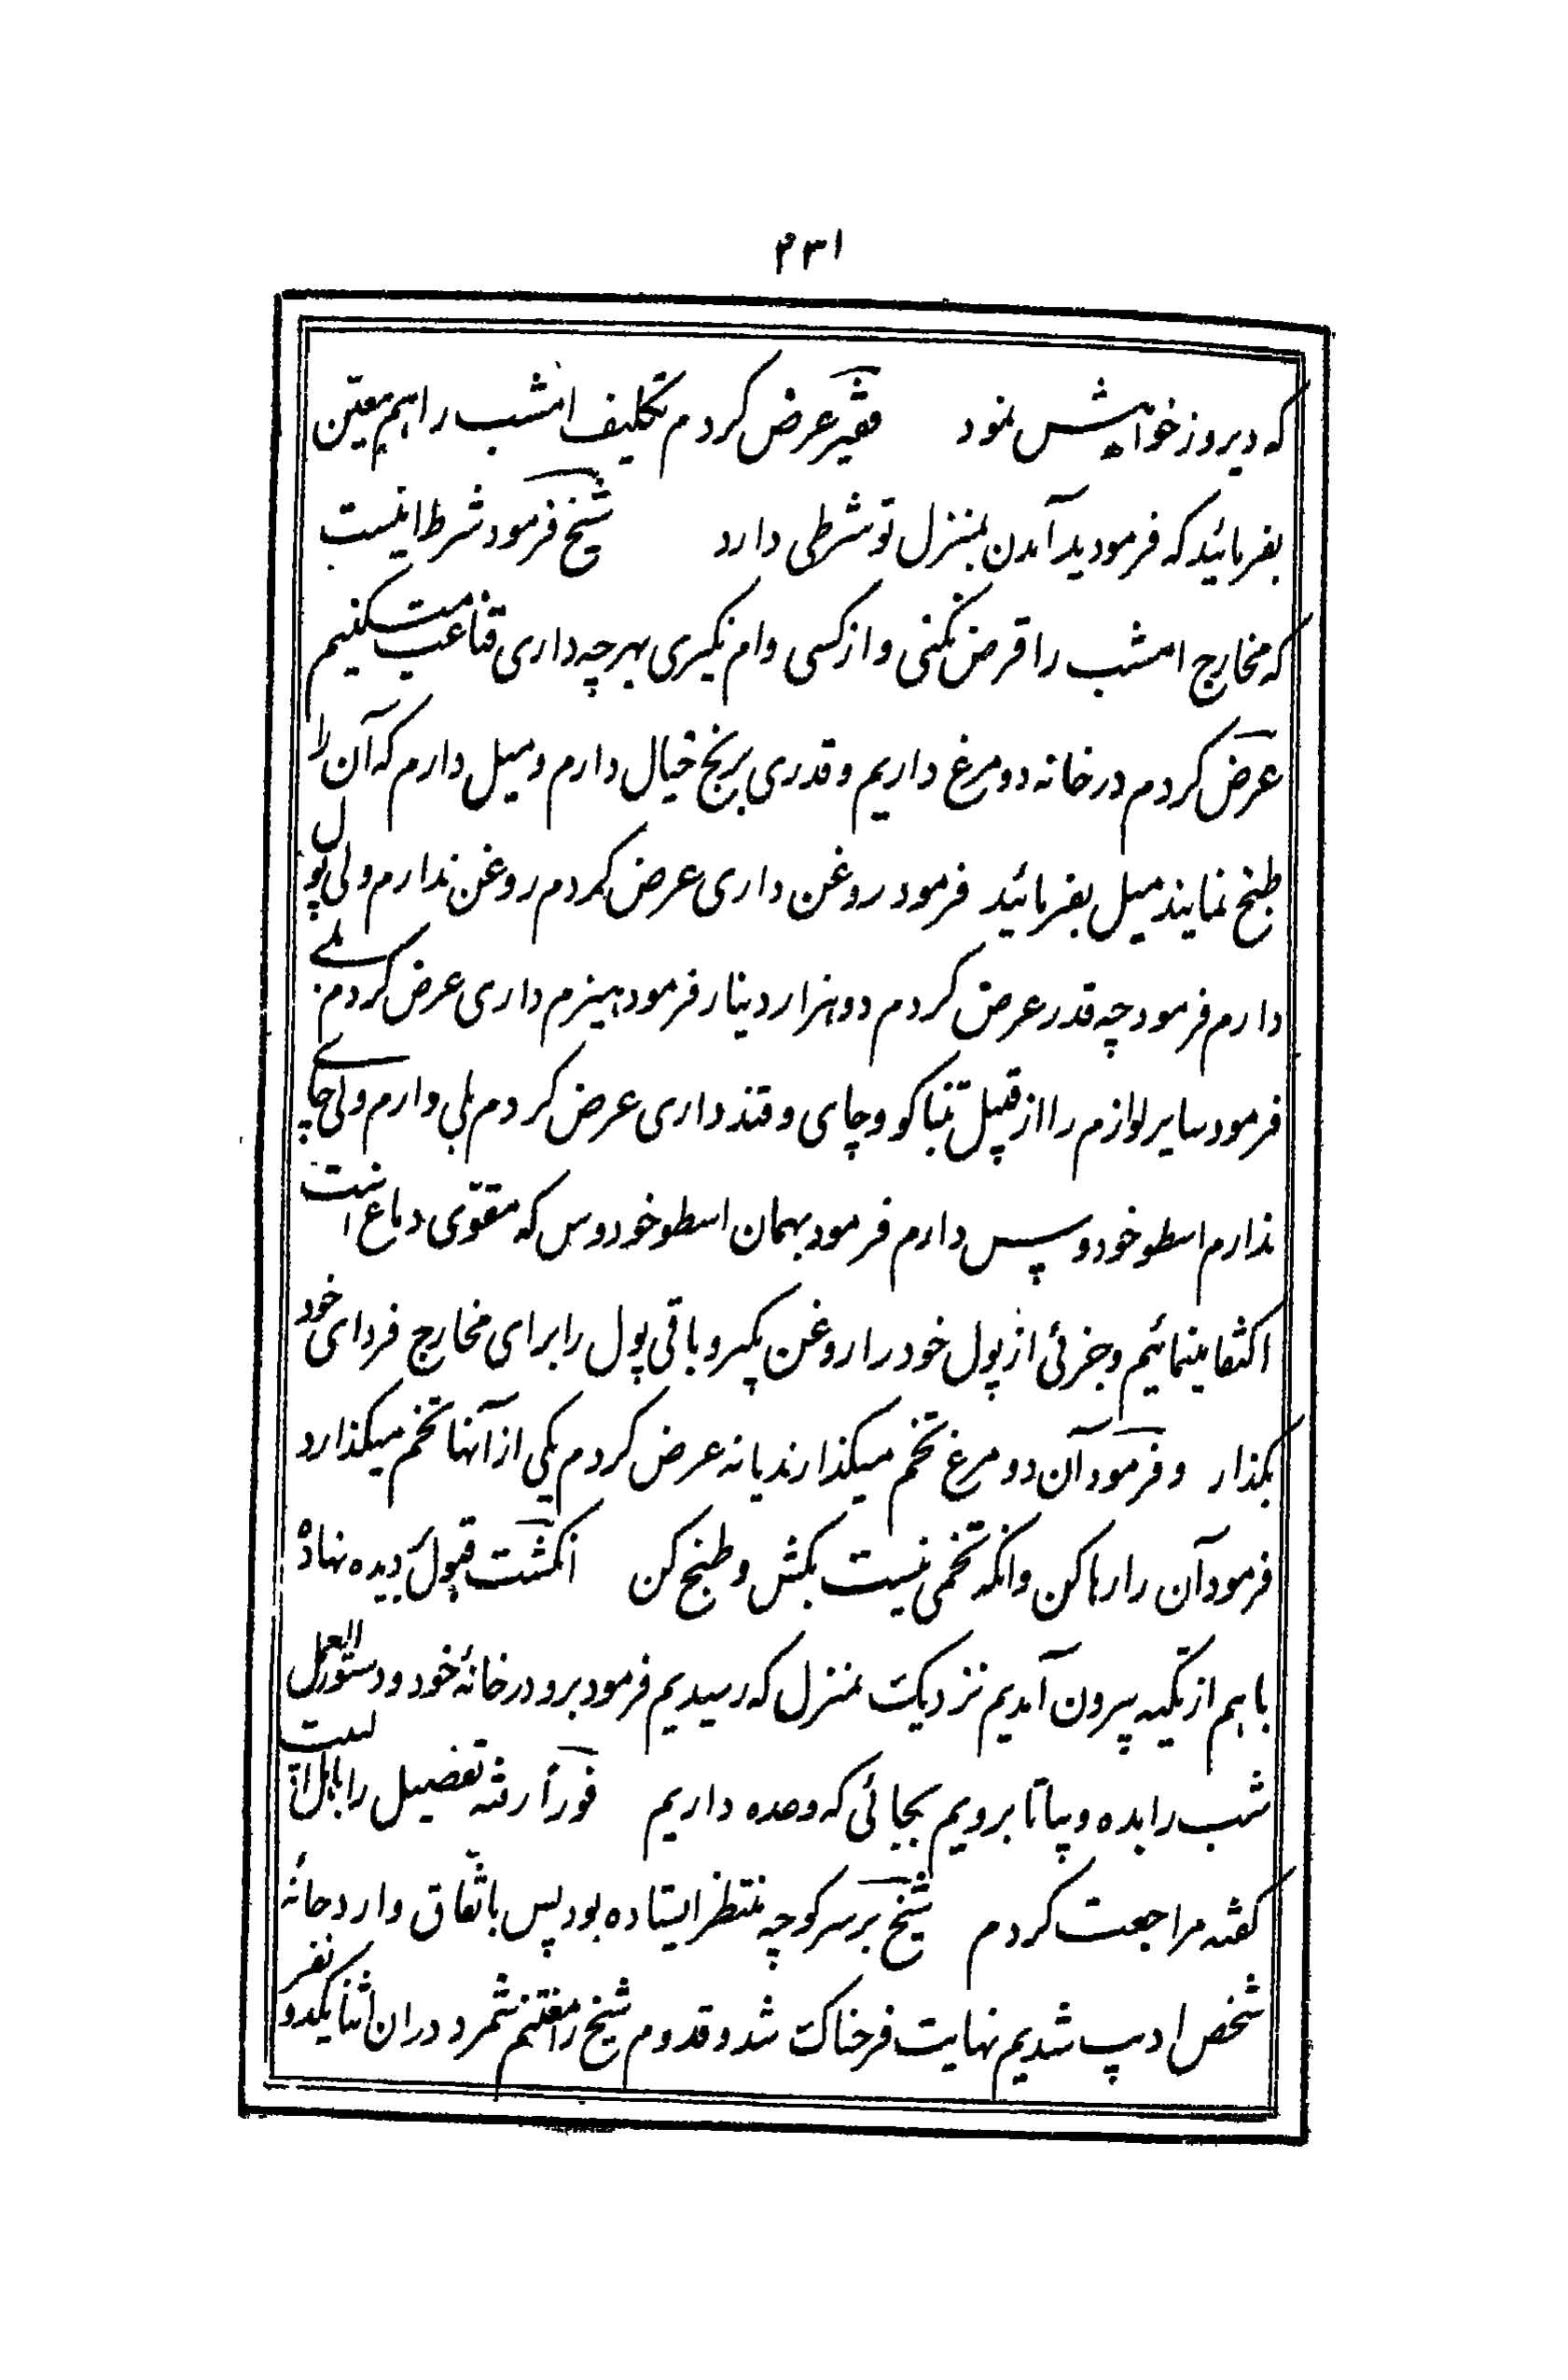 ۲۳۱
که دیروز خواهش نمود فقیر عرض کردم تکلیف امشب را هم معیّن
بفرمائید که فرمودید آمدن بمنزل تو شرطی دارد شیخ فرمود شرط اینست
که مخارج امشب را قرض نکنی و از کسی وام نگیری بهرچه داری قناعت کنیم
عرض کردم در خانه دو مرغ داریم و قدری برنج خیال دارم و میل دارم که آن را
طبخ نمایند میل بفرمائید فرمود روغن داری عرض کردم روغن ندارم ولی پول
دارم فرمود چه قدر عرض کردم دو هزار دینار فرمود هیزم داری عرض کردم بلے
فرمود سایر لوازم را از قبیل تنباکو و چای و قند داری عرض کردم بلی دارم ولی چاے
ندارم اسطوخودوس دارم فرمود بهمان اسطوخودوس که مقوّی دماغ است
اکتفا بنمائیم و جزئی از پول خود را روغن بگیر و باقی پول را برای مخارج فردای خود
بگذار و فرمود آن دو مرغ تخم میگذارند یا نه عرض کردم یکی از آنها تخم میگذارد
فرمود آن را رها کن وانکه تخمی نیست بکش و طبخ کن انگشت قبول بدیده نهاده
با هم از تکیه بیرون آمدیم نزدیک بمنزل که رسیدیم فرمود برو در خانهٔ خود و دستورالعمل
شب را بده و بیا تا برویم بجائی که وعده داریم فوراً رفته تفصیل را باهل بیت
گفته مراجعت کردم شیخ بر سر کوچه منتظر ایستاده بود پس باتّفاق وارد خانهٔ
شخص ادیب شدیم نهایت فرحناک شد و قدوم شیخ را مغتنم شمرد در ان اثنا یکدو نفر